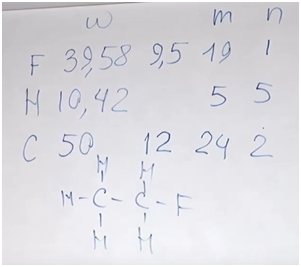 w m n
F 39,58 9,5 19 1
H 10,42 5 5
C 50 12 24 2
H H
H-C-C-F
H H